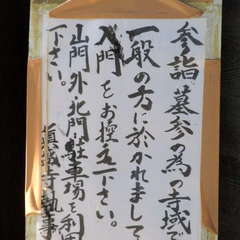 参詣墓参の為の寺域で
一般の方に於かれまして
入門をお控え下さい。
山門外北門駐車場を利用
下さい。
寺執事